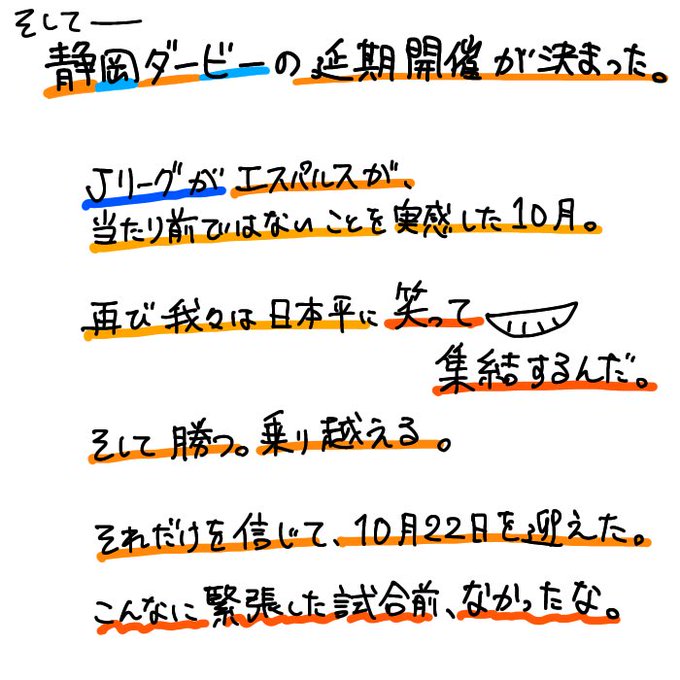 そして――
静岡ダービーの延期開催が決まった。
Jリーグがエスパルスが、
当たり前ではないことを実感した10月。
再び我々は日本平に笑って
集結するんだ。
そして勝つ。乗り越える。
それだけを信じて、10月22日を迎えた。
こんなに緊張した試合前、なかったな。